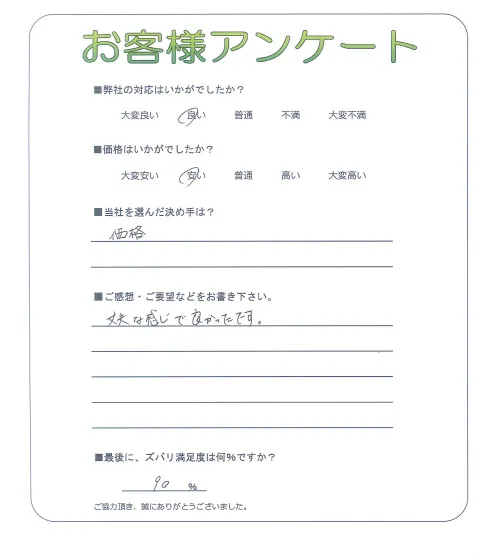 お客様アンケート
■弊社の対応はいかがでしたか？
大変良い 良い 普通 不満 大変不満
■価格はいかがでしたか？
大変安い 安い 普通 高い 大変高い
■当社を選んだ決め手は？
価格
■ご感想・ご要望などをお書き下さい。
丈夫な感じで良かったです。
■最後に、ズバリ満足度は何％ですか？
90 ％
ご協力頂き、誠にありがとうございました。